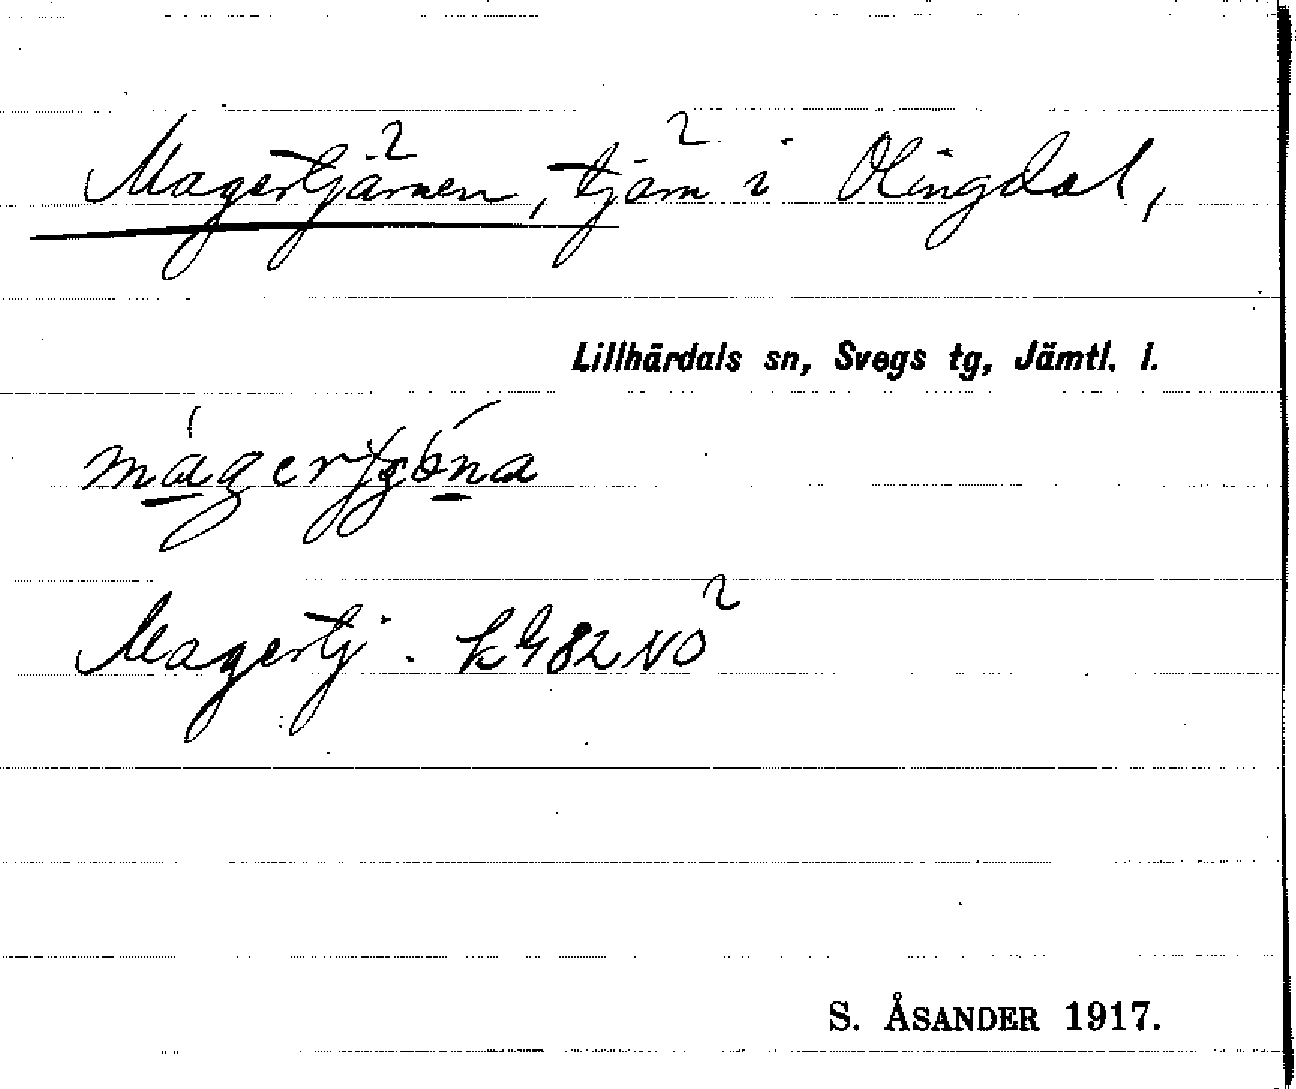 Magertjärnen, tjärn i Olingdal,
Lillhärdals sn, Svegs tg, Jämtl. l.
Magertj. k G 82 NO²
S. ÅSANDER 1917.